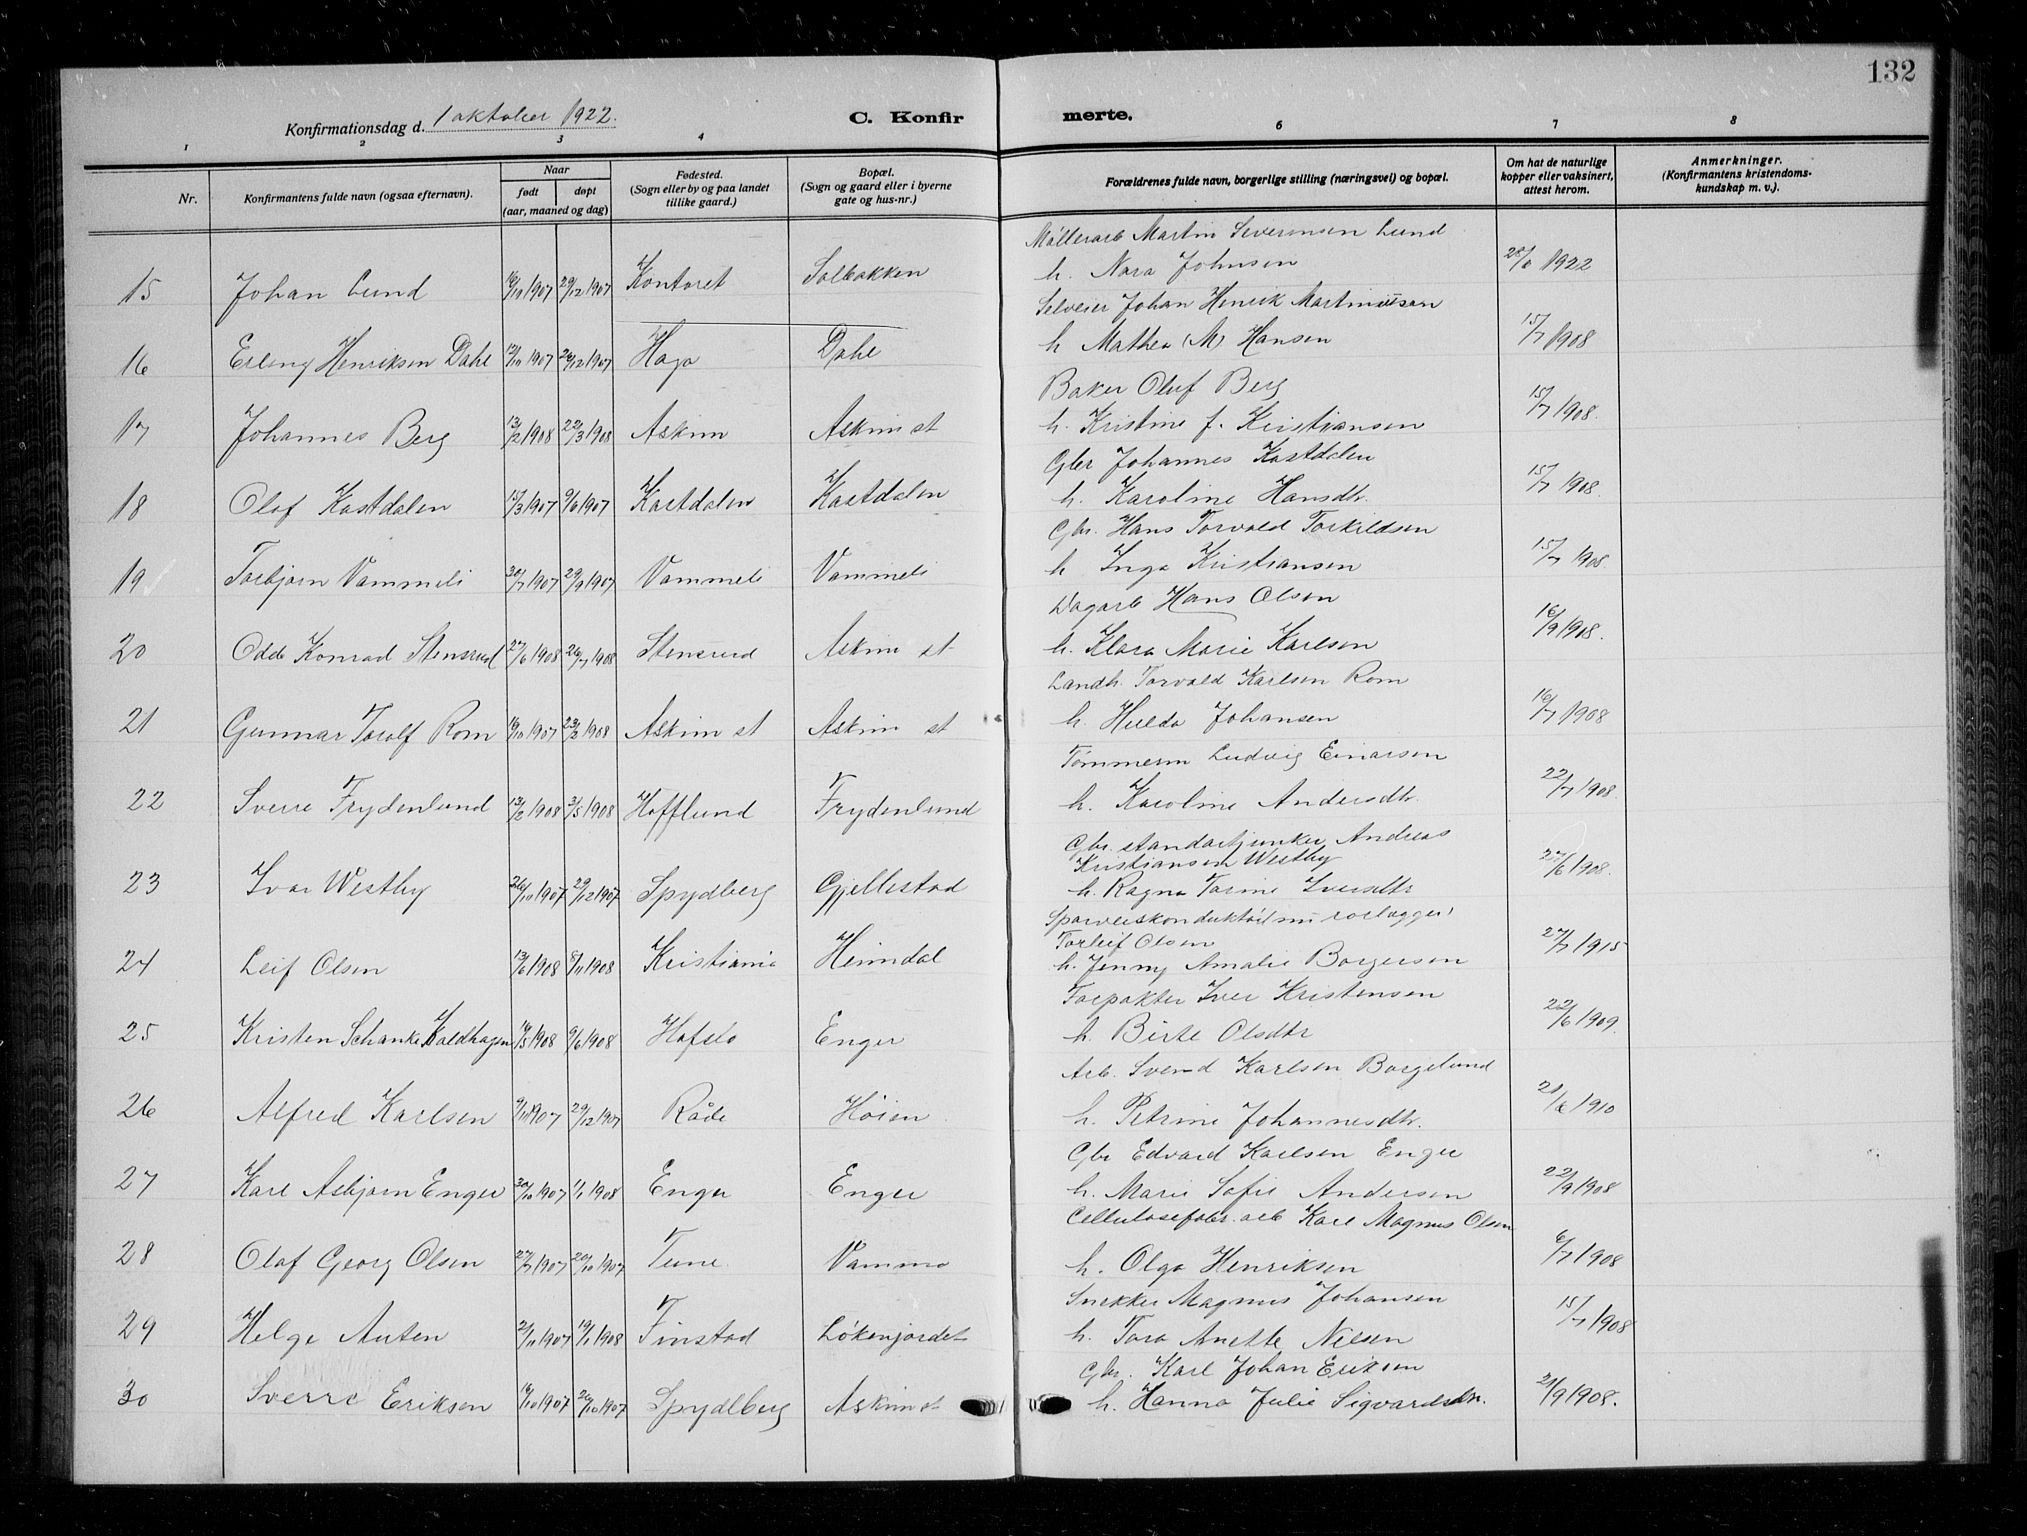 132
Konfirmationsdag d. 1 oktober 1922.
C. Konfirmerte.
1 2 3 4 6 7 8
Nr.
Konfirmantens fulde navn (ogsaa efternavn).
Naar
født døpt
(aar, maaned og dag)
Fødested.
(Sogn eller by og paa landet
tillike gaard.)
Bopæl.
(Sogn og gaard eller i byerne
gate og hus-nr.)
Forældrenes fulde navn, borgerlige stilling (næringsvei) og bopæl.
Om hat de naturlige
kopper eller vaksinert,
attest herom.
Anmerkninger.
(Konfirmantens kristendoms-
kundskap m. v.).
Møllerarb Martin Severinsen Lund
15 Johan Lund 16/10 1907 29/12 1907 Kontoret Solbakken h. Nora Johnsen 28/6 1922
Selveier Johan Henrik Martinussen
16 Erling Henriksen Dahl 12/10 1907 26/12 1907 Haga Dahl h Mathea (M) Hansen 15/7 1908
Baker Oluf Berg
17 Johannes Berg 13/2 1908 22/3 1908 Askim Askim st h. Kristine f. Kristiansen 15/7 1908.
Gbr Johannes Kastdalen
18 Olaf Kastdalen 15/3 1907 9/6 1907 Kastdalen Kastdalen h. Karoline Hansdtr. 15/7 1908.
Gbr. Hans Torvald Torkildsen
19 Torbjørn Vammeli 30/7 1907 29/9 1907 Vammeli Vammeli h Inga Kristiansen 15/7 1908
Dagarb Hans Olsen
20 Odd Konrad Stensrud 27/6 1908 26/7 1908 Stensrud Askim st h. Klara Marie Karlsen 16/9 1908.
Landh. Torvald Karlsen Rom
21 Gunnar Torolf Rom 16/10 1907 23/2 1908 Askim st Askim st h. Hulda Johansen 16/7 1908
Tømmerm Ludvig Einarsen
22 Sverre Frydenlund 13/2 1908 3/5 1908 Hofflund Frydenlund h. Karoline Andersdtr. 22/7 1908.
Gbr. standartjunker Andreas
Kristiansen Westby
23 Ivar Westby 26/10 1907 29/12 1907 Spydberg Gjellestad h. Ragna Torine Iversdtr 27/6 1908.
Sporveiskonduktør nu rørlegger
Torleif Olsen
24 Leif Olsen 13/6 1908 8/11 1908 Kristiania Heimdal h. Jenny Amalie Borgersen 27/7 1915
Forpakter Iver Kristensen
25 Kristen Schanke Koldhagen 16/5 1908 9/6 1908 Hafslo Enger h. Birte Olsdtr 22/6 1909.
Arb. Svend Karlsen Borgelund
26 Alfred Karlsen 9/11 1907 29/12 1907 Råde Høien h. Petrine Johannesdtr. 21/6 1910
Gbr Edvard Karlsen Enger
27 Karl Asbjørn Enger 30/10 1907 1/1 1908 Enger Enger h. Marie Sofie Andersen 22/9 1908
Cellulosefabr. arb Karl Magnus Olsen
28 Olaf Georg Olsen 27/7 1907 20/10 1907 Tune Vamma h. Olga Henriksen 6/7 1908
Snekker Magnus Johansen
29 Helge Auten 2/11 1907 19/1 1908 Finstad Løkenjordet h. Tora Anette Nilsen 15/7 1908
Gbr. Karl Johan Eriksen
30 Sverre Eriksen 16/10 1907 26/10 1907 Spydberg Askim st h. Hanna Julie Sigvardsdtr. 21/9 1908.